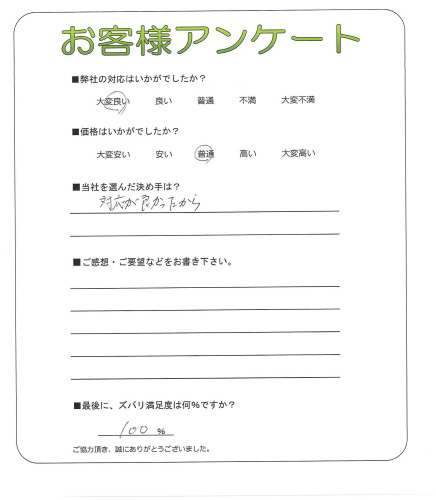 お客様アンケート
■弊社の対応はいかがでしたか？
大変良い 良い 普通 不満 大変不満
■価格はいかがでしたか？
大変安い 安い 普通 高い 大変高い
■当社を選んだ決め手は？
対応が良かったから
■ご感想・ご要望などをお書き下さい。
■最後に、ズバリ満足度は何％ですか？
100 ％
ご協力頂き、誠にありがとうございました。